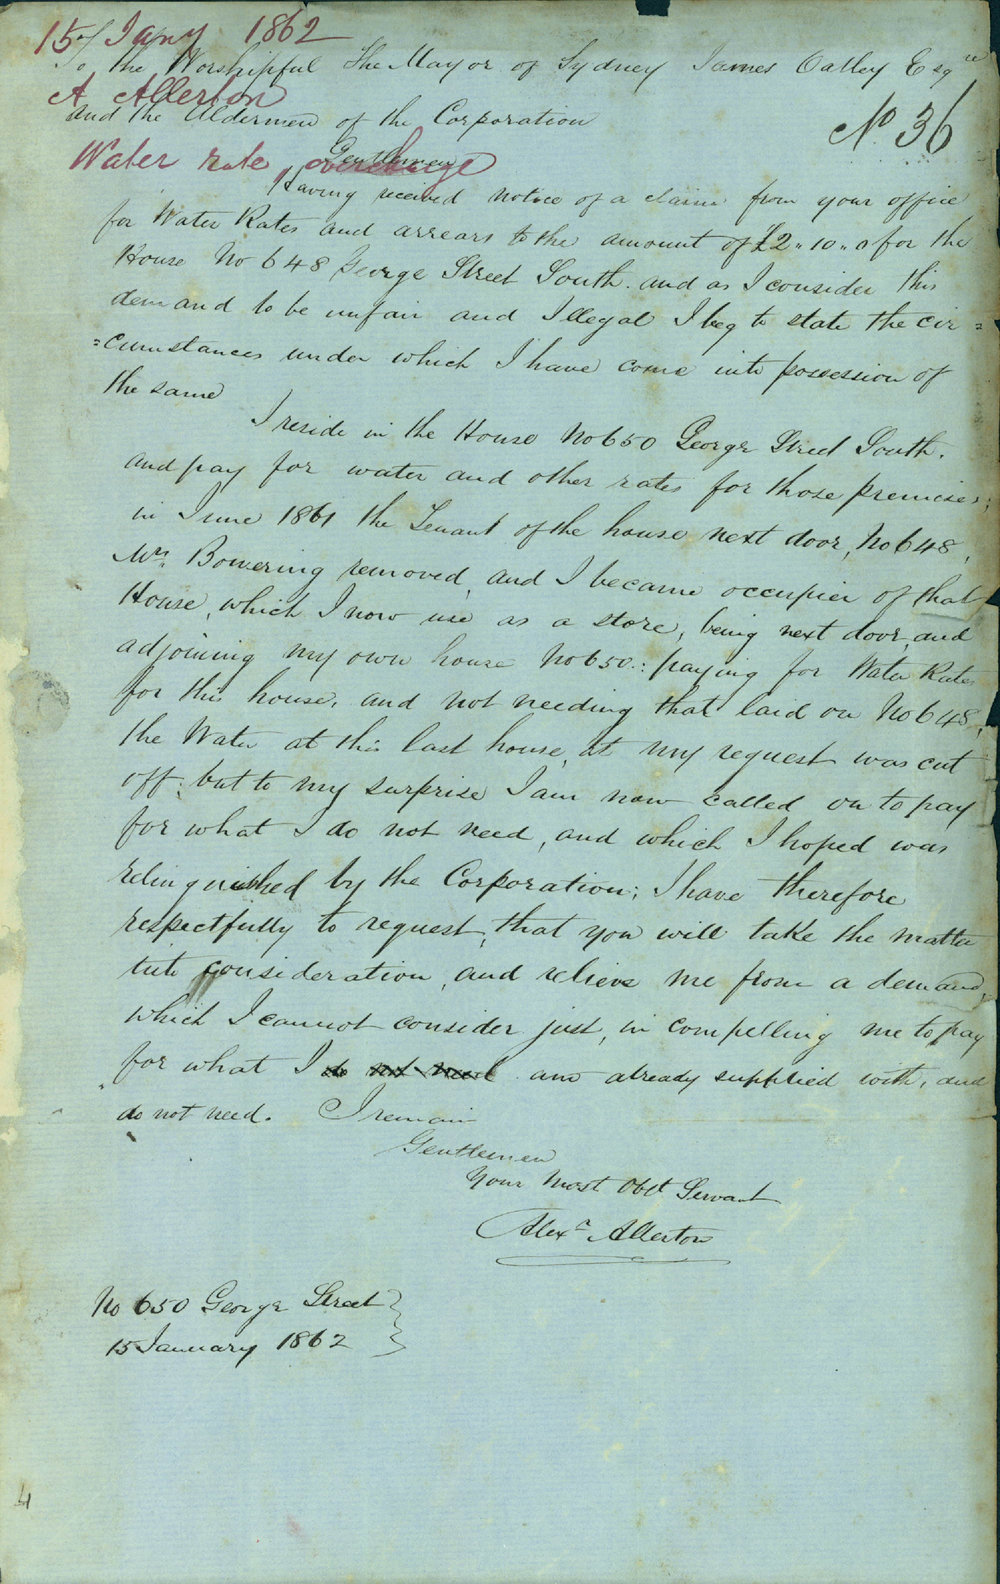 15/ Jany 1862
To the Worshipful The Mayor of Sydney James Oatley Esqre
A Allerton
No 36
and the Aldermen of the Corporation
Water rate overcharge
Gentlemen
Having received notice of a claim from your office
for Water Rates and arrears to the amount of £2"10"0 for the
House No 648 George Street South. and as I consider this
demand to be unfair and Illegal I beg to state the cir=
=cumstances under which I have come into possession of
the same
I reside in the House No 650 George Street South.
and pay for water and other rates for those premises;
in June 1861 the Tenant of the house next door, No 648,
Mrs. Bowering removed, and I became occupier of that
House, which I now use as a store, being next door, and
adjoining my own house No 650.: paying for Water Rates
for this house, and not needing that laid on No 648,
the Water at this last house, at my request was cut
off; but to my surprise I am now called on to pay
for what I do not need, and which I hoped was
relinquished by the Corporation; I have therefore
respectfully to request, that you will take the matter
into consideration, and relieve me from a demand,
which I cannot consider just, in compelling me to pay
for what I do not need am already supplied with, and
do not need. I remain
Gentlemen
Your Most Obt Servant
Alexr Allerton
No 650 George Street
15 January 1862
4